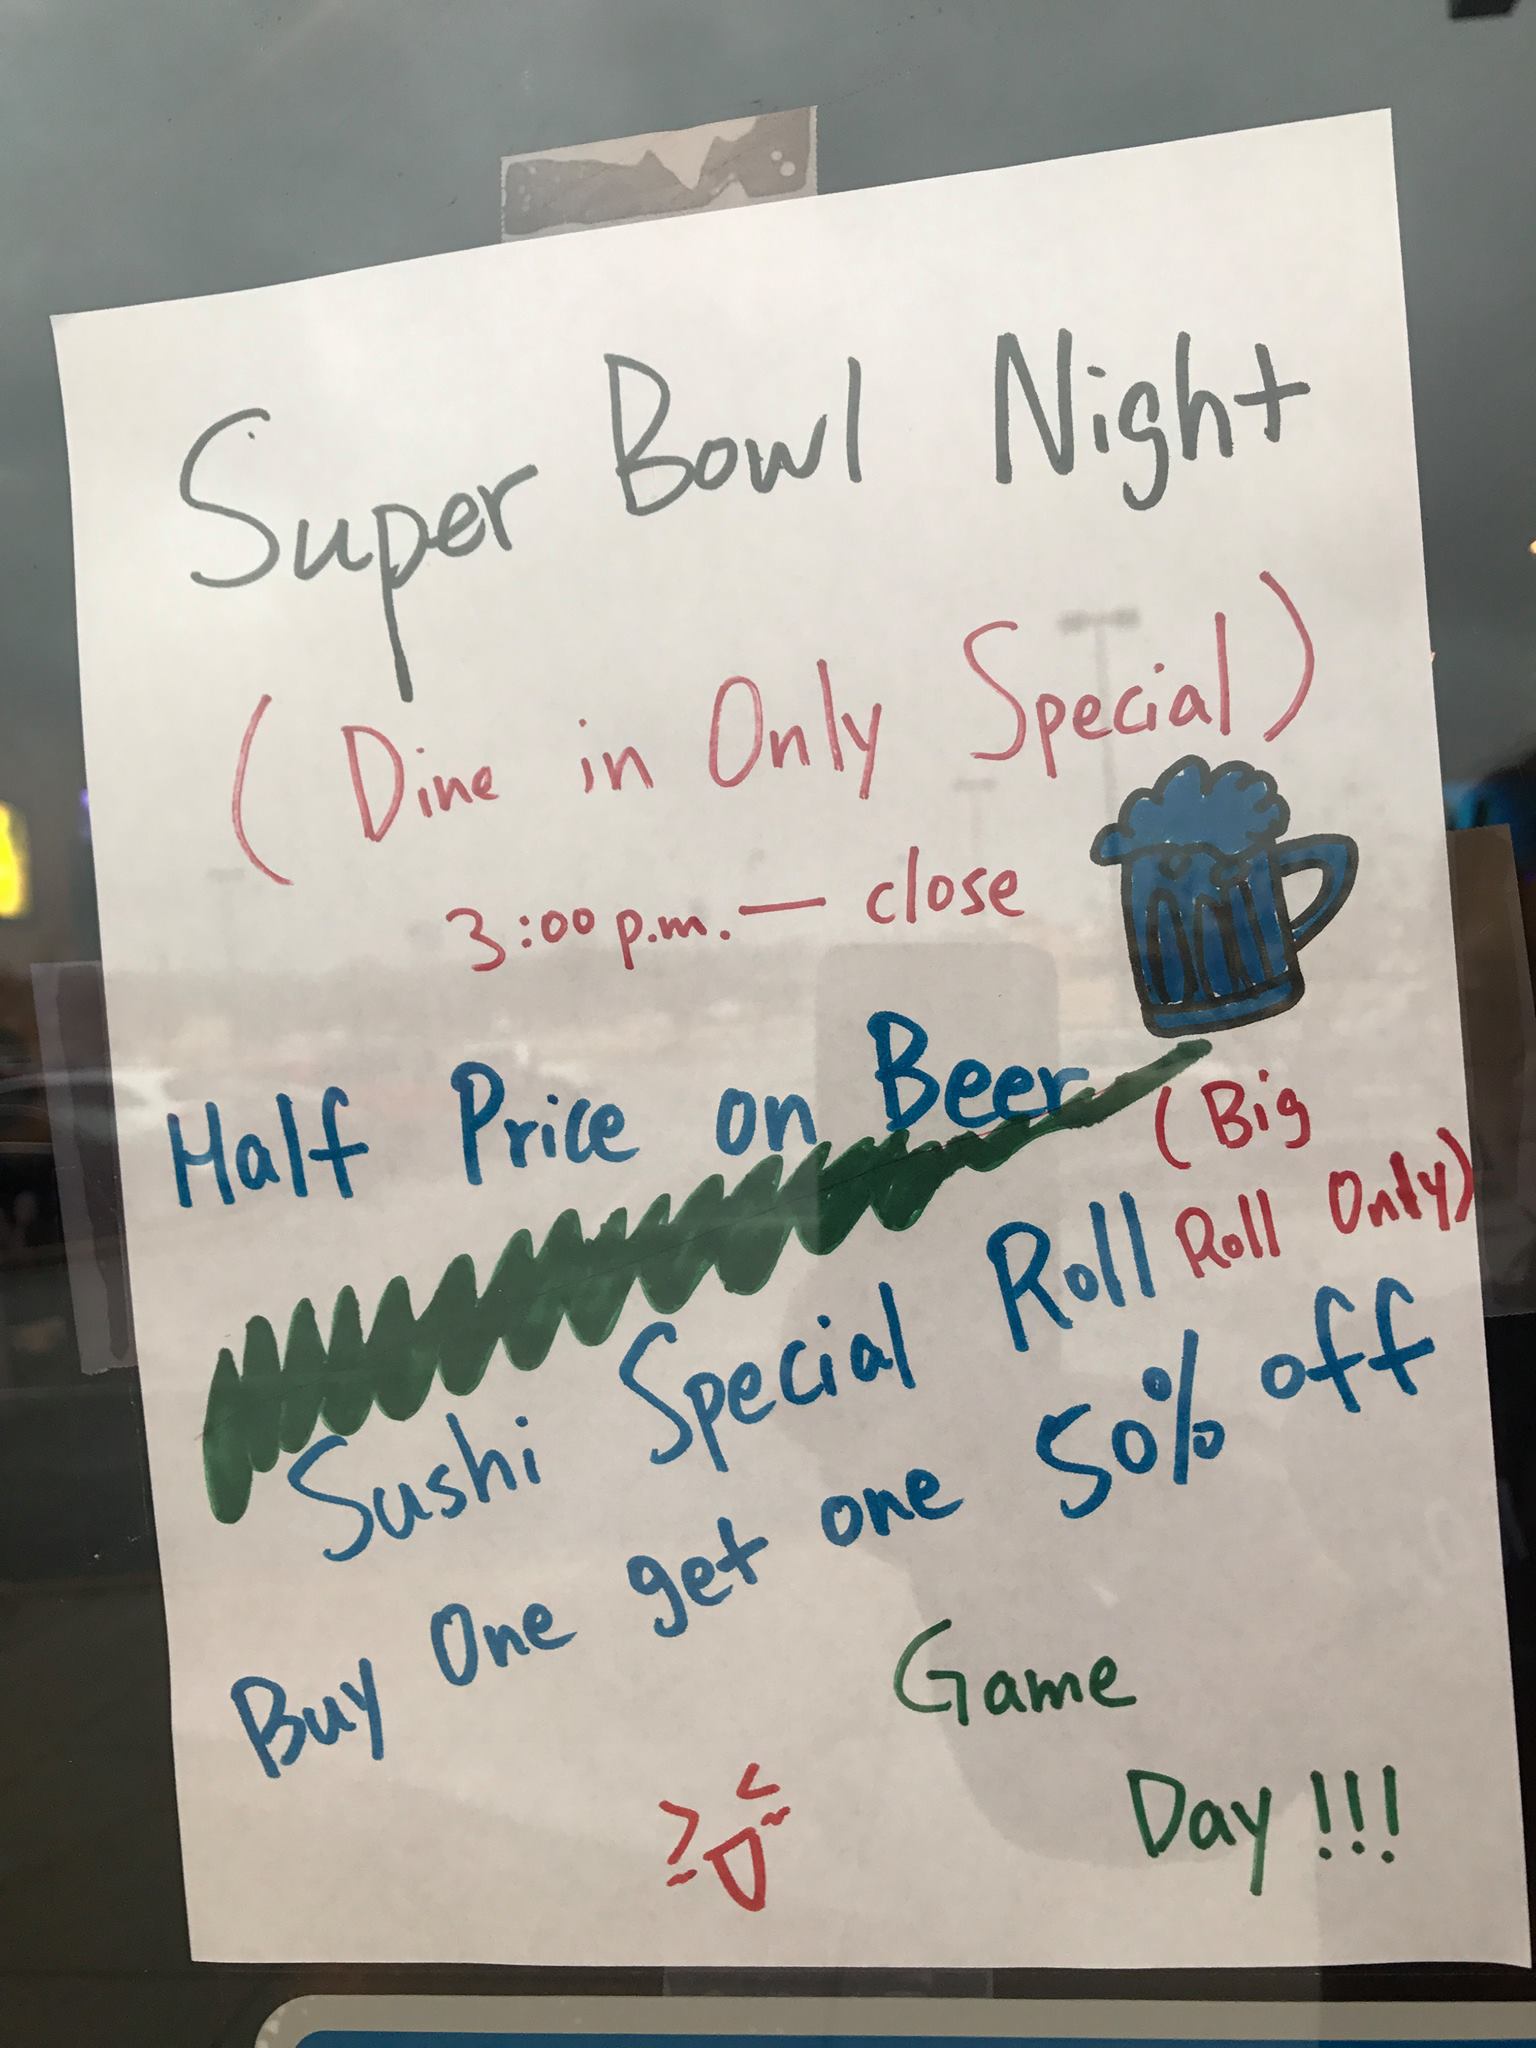 Super Bowl Night
(Dine in Only Special)
3:00 p.m. — close
Half Price on Beer
Sushi Special Roll (Big
Roll Only)
Buy One get one 50% off
Game
Day!!!